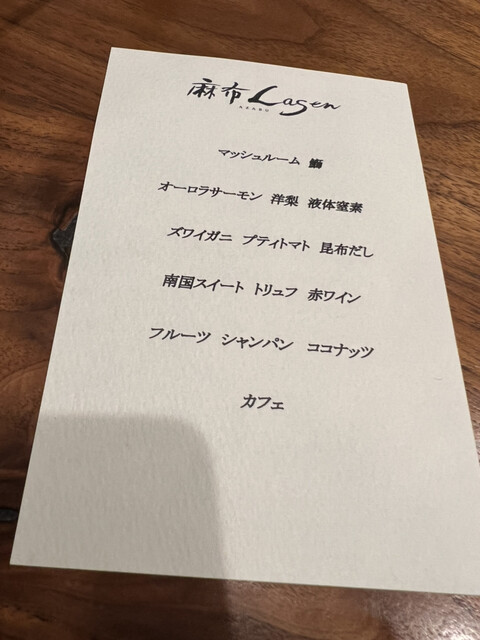 麻布 Lagen
AZABU
マッシュルーム 鰤
オーロラサーモン 洋梨 液体窒素
ズワイガニ プティトマト 昆布だし
南国スイート トリュフ 赤ワイン
フルーツ シャンパン ココナッツ
カフェ